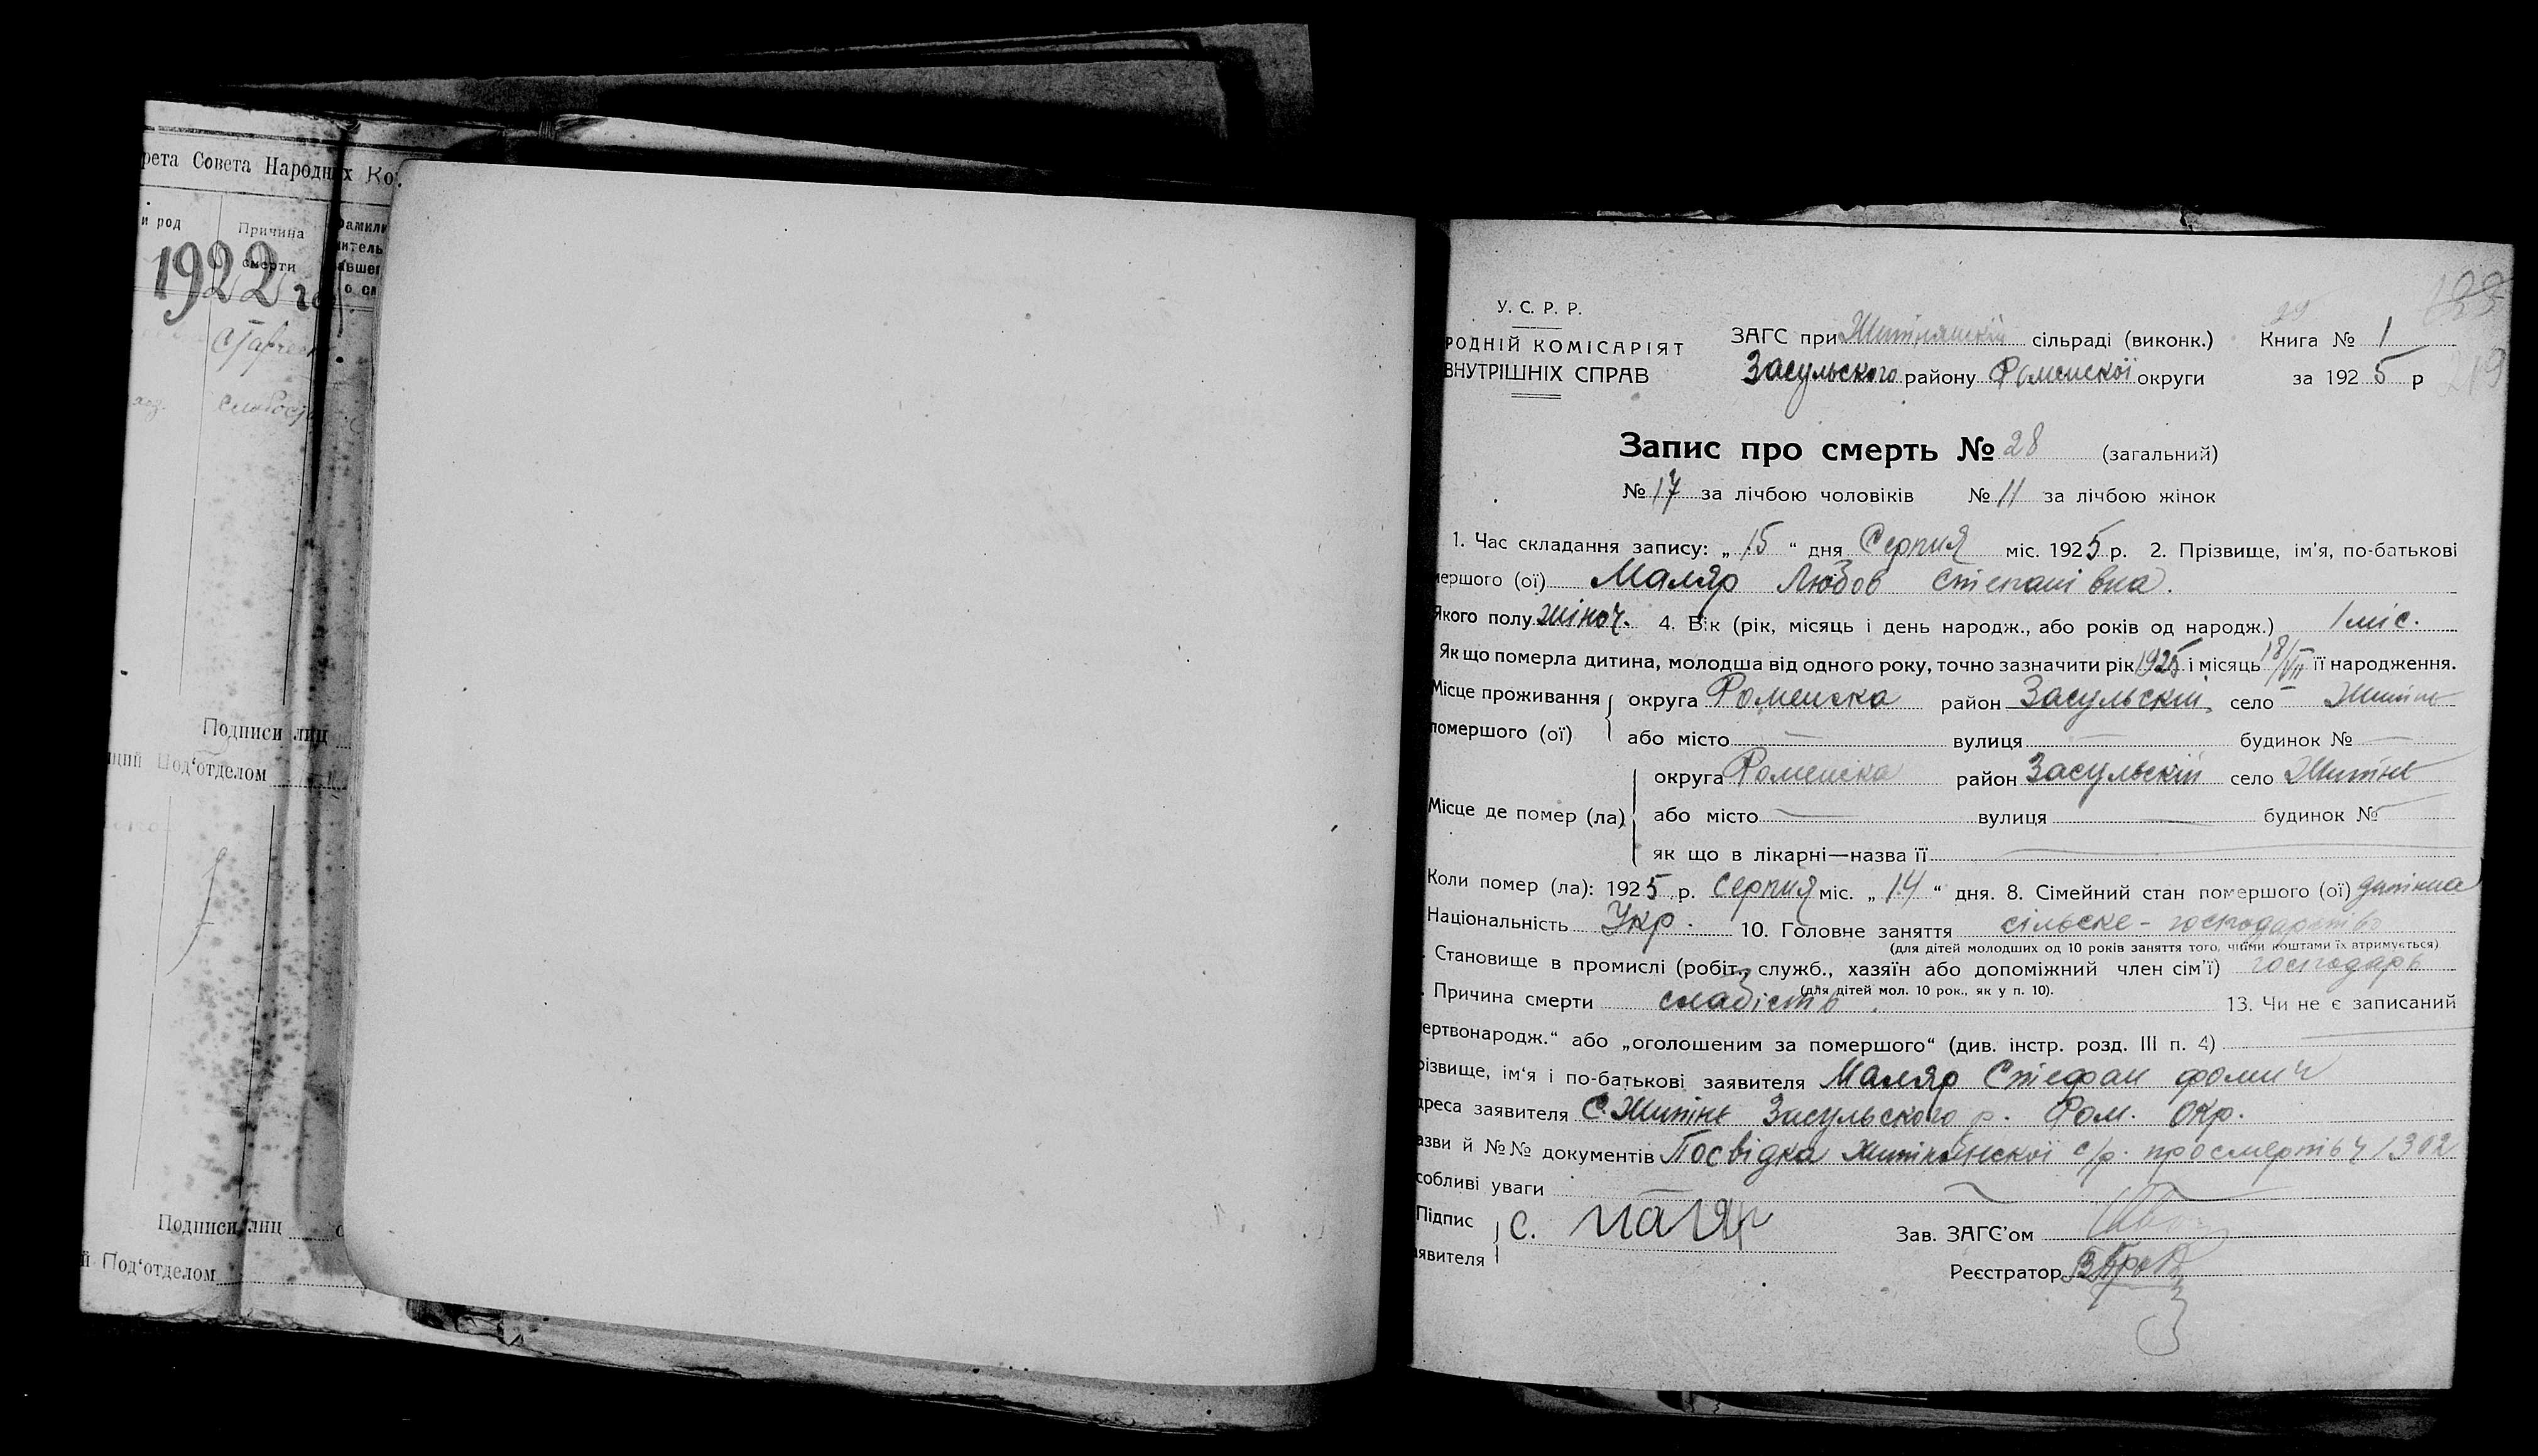 рета Совета Народных Ко
и род
Причина
смерти
1922
слабость
Подписи лиц
Под'отделом
Подписи лиц
й Под'отделом
У. С. Р. Р.
РОДНІЙ КОМІСАРІЯТ
ВНУТРІШНІХ СПРАВ
ЗАГС при Житнянскій сільраді (виконк.)
Засульского району Роменскої округи
Книга № 1
за 1925 р
219
Запис про смерть № 28 (загальний)
№ 17 за лічбою чоловіків № 11 за лічбою жінок
1. Час складання запису: „ 15 “ дня Серпня міс. 1925 р. 2. Прізвище, ім'я, по-батькові
мершого (ої) Маляр Любов Степанівна.
Якого полу жіноч. 4. Вік (рік, місяць і день народж., або років од народж.) 1 міс.
Як що померла дитина, молодша від одного року, точно зазначити рік 1925 і місяць 18/VII її народження.
Місце проживання помершого (ої) округа Роменска район Засульскій село Житнє
або місто — вулиця — будинок № —
Місце де помер (ла) округа Роменска район Засульскій село Житнє
або місто — вулиця — будинок №
як що в лікарні—назва її
Коли помер (ла): 1925 р. Серпня міс. „ 14 “ дня. 8. Сімейний стан помершого (ої) дитина
Національність Укр. 10. Головне заняття сільске-господарство
(для дітей молодших од 10 років заняття того, чиїми коштами їх втримується)
Становище в промислі (робіт., служб., хазяїн або допоміжний член сім'ї) господарь
(для дітей мол. 10 рок., як у п. 10).
Причина смерти слабість. 13. Чи не є записаний
ертвонародж.“ або „оголошеним за помершого“ (див. інстр. розд. III п. 4)
різвище, ім'я і по-батькові заявителя Маляр Стефан фомич
дреса заявителя С. Житнє Засульского р. Ром. Окр.
азви й №№ документів Посвідка Житнянскої с/р. про смерть ч 1302
собливі уваги
Підпис
аявителя
С. Маляр
Зав. ЗАГС'ом
Реєстратор